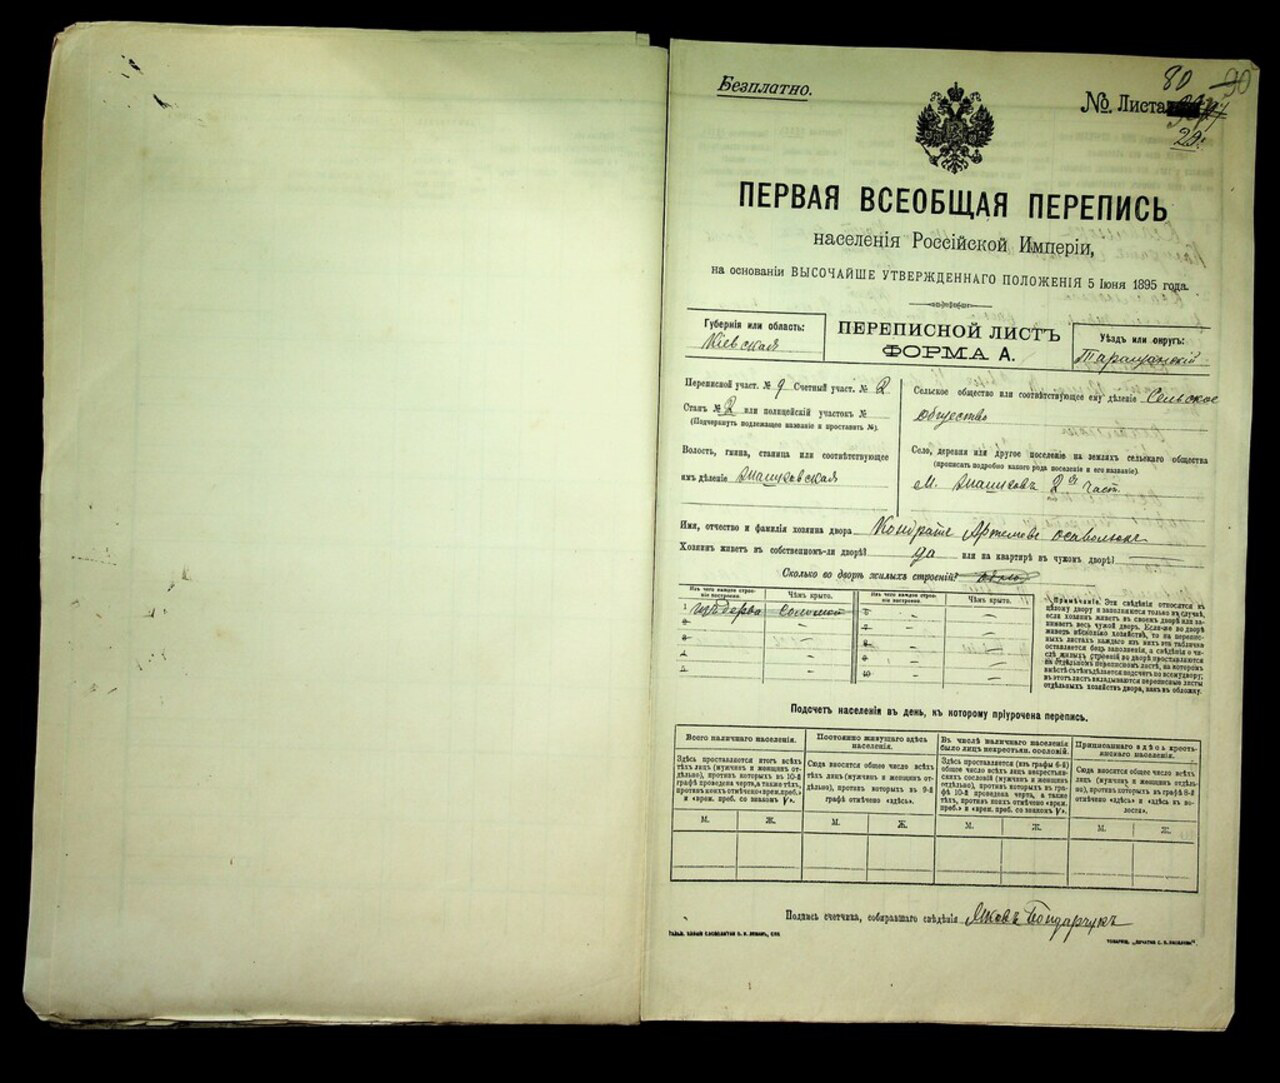 Безплатно.
80 90
№ Листа
29.
ПЕРВАЯ ВСЕОБЩАЯ ПЕРЕПИСЬ
населенія Россійской Имперіи,
на основаніи ВЫСОЧАЙШЕ УТВЕРЖДЕННАГО ПОЛОЖЕНІЯ 5 Іюня 1895 года.
Губернія или область:
Кіевская
ПЕРЕПИСНОЙ ЛИСТЪ
ФОРМА А.
Уѣздъ или округъ:
Таращанскій
Переписной участ. № 9 Счетный участ. № 2
Станъ № 2 или полицейскій участокъ №
(Подчеркнуть подлежащее названіе и проставить №).
Волость, гмина, станица или соотвѣтствующее
имъ дѣленіе
Сельское общество или соотвѣтствующее ему дѣленіе Сельское
общество
Село, деревня или другое поселеніе на земляхъ сельскаго общества
(прописать подробно какого рода поселеніе и его названіе).
М. 2я част.
Имя, отчество и фамилія хозяина двора Кондратъ Артемовъ
Хозяинъ живетъ въ собственномъ-ли дворѣ? да или на квартирѣ въ чужомъ дворѣ?
Сколько во дворѣ жилыхъ строеній?
Изъ чего каждое строеніе построено.
Чѣмъ крыто.
Изъ чего каждое строеніе построено.
Чѣмъ крыто.
1 изъ дерва соломой 6
2 7
3 8
4 9
5 10
Примѣчаніе. Эти свѣдѣнія относятся къ
цѣлому двору и заполняются только въ случаѣ,
если хозяинъ живетъ въ своемъ дворѣ или занимаетъ
весь чужой дворъ. Если-же во дворѣ
живетъ нѣсколько хозяйствъ, то на переписныхъ
листахъ каждаго изъ нихъ эта табличка
оставляется безъ заполненія, а свѣдѣнія о числѣ
жилыхъ строеній во дворѣ проставляются
на отдѣльномъ переписномъ листѣ, на которомъ
вмѣстѣ съ тѣмъ дѣлается подсчетъ по всему двору;
въ этотъ листъ вкладываются переписные листы
отдѣльныхъ хозяйствъ двора, какъ въ обложку.
Подсчетъ населенія въ день, къ которому пріурочена перепись.
Всего наличнаго населенія.
Постоянно живущаго здѣсь населенія.
Въ числѣ наличнаго населенія было лицъ некрестьян. сословій.
Приписаннаго здѣсь крестьянскаго населенія.
Здѣсь проставляется итогъ всѣхъ
тѣхъ лицъ (мужчинъ и женщинъ отдѣльно),
противъ которыхъ въ 10-й
графѣ проведена черта, а также тѣхъ,
противъ коихъ отмѣчено «врем. преб.»
и «врем. преб. со знакомъ V».
Сюда вносится общее число всѣхъ
тѣхъ лицъ (мужчинъ и женщинъ отдѣльно),
противъ которыхъ въ 9-й
графѣ отмѣчено «здѣсь».
Здѣсь проставляется (изъ графы 6-й)
общее число всѣхъ лицъ некрестьянскихъ
сословій (мужчинъ и женщинъ
отдѣльно), противъ которыхъ въ графѣ
10-й проведена черта, а также
тѣхъ, противъ коихъ отмѣчено «врем.
преб.» и «врем. преб. со знакомъ V».
Сюда вносится общее число всѣхъ
лицъ (мужчинъ и женщинъ отдѣльно),
противъ которыхъ въ графѣ 8-й
отмѣчено «здѣсь» и «здѣсь въ волости».
М. Ж. М. Ж. М. Ж. М. Ж.
Подпись счетчика, собиравшаго свѣдѣнія Яковъ Бондарчукъ